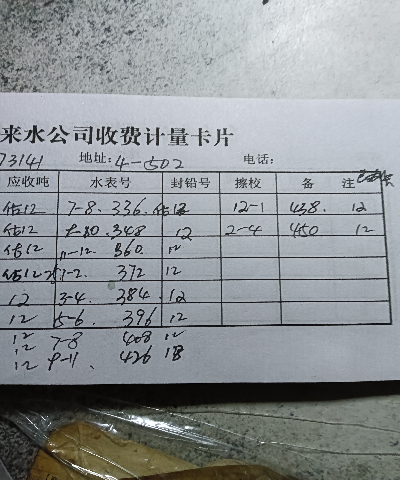 来水公司收费计量卡片
73141 地址:4-502 电话:
应收吨 水表号 封铅号 擦校 备 注
估12 7-8. 336. 估12 12-1 438. 12
估12 348 12 2-4 450 12
估12 11-12. 360. 12
估12 1-2. 372 12
12 3-4. 384. 12
12 5-6. 396 12
12 7-8 408 12
12 9-11. 426 18